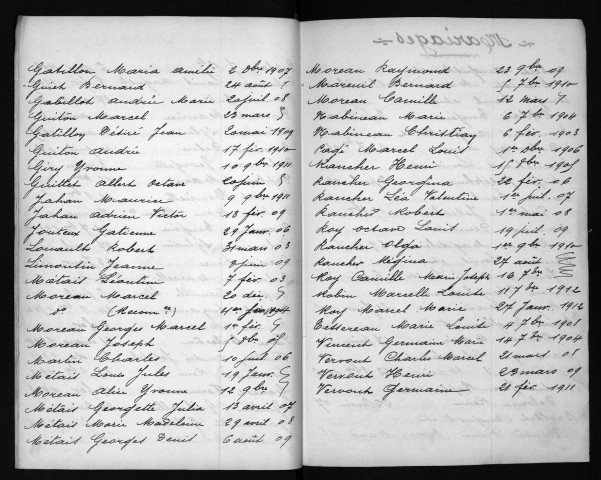 Gatillon Maria Amélie 2 Obre 1907
Guiet Bernard 24 août
Gatillot Andrée Marie 20 juil 08
Guiton Marcel 23 mars
Gatilloy Désiré Jean 20 mai 1909
Guiton André 17 fév. 1910
Giry Yvonne 10 9bre 1911
Guillet Albert Octave 20 juin
Jahan Maurice 9 9bre 1911
Jahan Adrien Victor 13 fév. 09
Jouteux Gatienne 29 Janv. 06
Louault Robert 3 mars 03
Limontin Jeanne 8 juin 09
Métais Léontine 7 fév. 03
Moreau Marcel 20 déc.
do (Reconn ce)
Moreau Georges Marcel 1er fév.
Moreau Joseph
Martin Charles 10 juil 06
Métais Louis Jules 19 Janv.
Moreau Alice Yvonne 12 9bre
Métais Georgette Julia 13 avril 07
Métais Marie Madeleine 29 avril 08
Métais Georges Denis 6 août 09
Mariages
Moreau Raymond 23 9bre 09
Mareuil Bernard 7bre 1910
Moreau Camille 12 mars
Nabineau Marie 6 7bre 1904
Nabineau Christian 6 fév. 1903
Pagé Marcel Louis 1er Obre 1906
Rancher Henri 15 8bre 1905
Rancher Georgina 22 fév. 06
Rancher Léa Valentine 1er juil. 07
Rancher Robert 1er mai 08
Roy Octave Louis 19 juil. 09
Rancher Olga 1er 9bre 1910
Rancher Régina 27 août
Roy Camille Marie Joseph 16 7bre
Robin Marcelle Louise 11 7bre 1912
Roy Marcel Marie 27 Janv. 1912
Tessereau Marie Louise 4 7bre 1905
Vincent Germaine Marie 14 7bre 1904
Vervout Charles Marcel 21 mars 08
Vervout Henri 28 mars 09
Vervout Germaine 21 fév. 1911